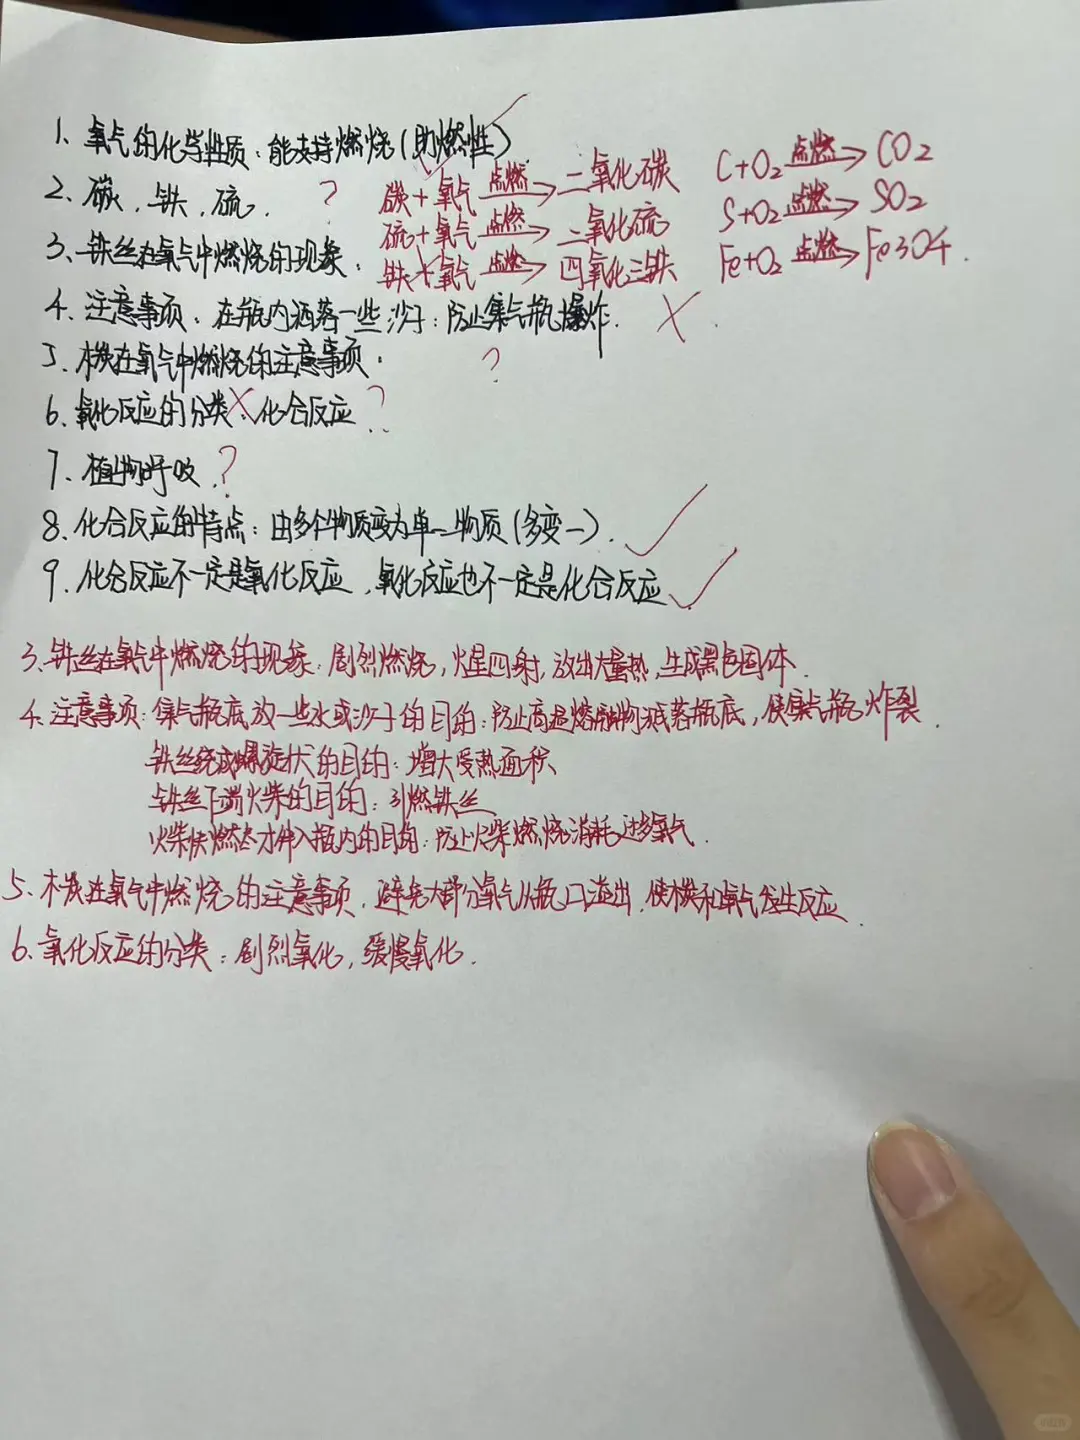 1、氧气的化学性质：能支持燃烧（助燃性）
2、碳，铁，硫． ?
碳＋氧气 点燃→ 二氧化碳 C+O₂ 点燃→ CO₂
硫＋氧气 点燃→ 二氧化硫 S+O₂ 点燃→ SO₂
3、铁丝在氧气中燃烧的现象：
铁＋氧气 点燃→ 四氧化三铁 Fe+O₂ 点燃→ Fe3O4．
4、注意事项：在瓶内洒落一些沙子：防止集气瓶爆炸．
5、木炭在氧气中燃烧的注意事项： ?
6、氧化反应的分类：化合反应 ?
7、植物呼吸 ?
8、化合反应的特点：由多个物质变为单一物质（多变一）．
9、化合反应不一定是氧化反应，氧化反应也不一定是化合反应
3、铁丝在氧气中燃烧的现象：剧烈燃烧，火星四射，放出大量热，生成黑色固体．
4、注意事项：集气瓶底放一些水或沙子的目的：防止高温熔融物溅落瓶底，使集气瓶炸裂．
铁丝绕成螺旋状的目的：增大受热面积
铁丝下端火柴的目的：引燃铁丝
火柴快燃尽才伸入瓶内的目的：防止火柴燃烧消耗过多氧气．
5、木炭在氧气中燃烧的注意事项．避免大部分氧气从瓶口溢出．使木炭和氧气发生反应
6、氧化反应的分类：剧烈氧化，缓慢氧化．